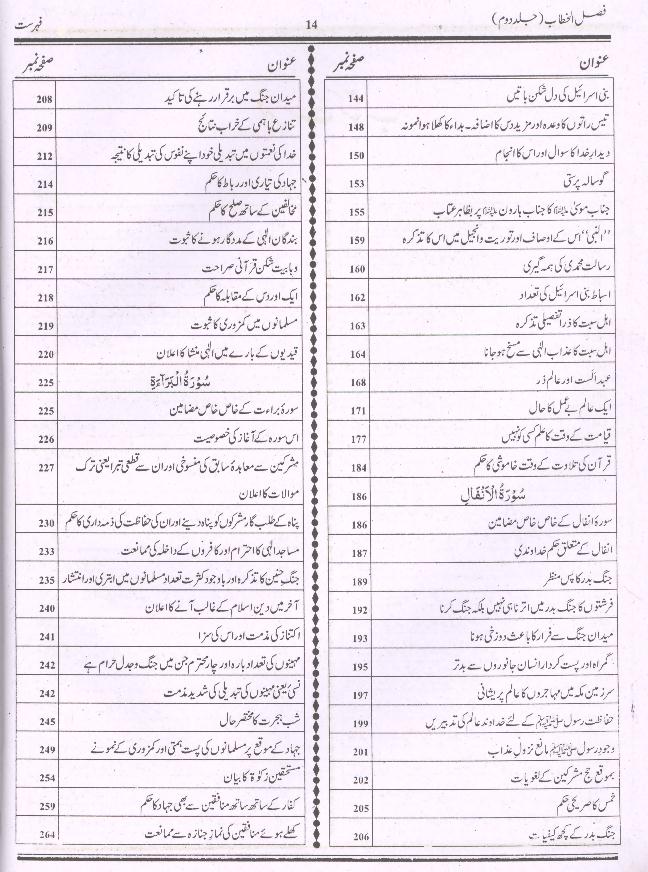 فصل الخطاب (جلد دوم)
14
فہرست
عنوان صفحہ نمبر
بنی اسرائیل کی دل شکن باتیں 144
تیس راتوں کا وعدہ اور مزید دس کا اضافہ۔ بداء کا کھلا ہوا نمونہ 148
دیدارِ خدا کا سوال اور اس کا انجام 150
گوسالہ پرستی 153
جناب موسیٰؑ کا جناب ہارونؑ پر بظاہر عتاب 155
''النبی'' اس کے اوصاف اور توریت وانجیل میں اس کا تذکرہ 159
رسالت محمدی کی ہمہ گیری 160
اسباط بنی اسرائیل کی تعداد 162
اہل سبت کا ذرا تفصیلی تذکرہ 163
اہل سبت کا عذاب الٰہی سے مسخ ہو جانا 164
عہد الست اور عالم ذر 168
ایک عالم بے عمل کا حال 171
قیامت کے وقت کا علم کسی کو نہیں 177
قرآن کی تلاوت کے وقت خاموشی کا حکم 184
سُوْرَةُ الْاَنْفَالِ 186
سورۂ انفال کے خاص خاص مضامین 186
انفال کے متعلق حکم خداوندی 187
جنگ بدر کا پس منظر 189
فرشتوں کا جنگ بدر میں اترنا ہی نہیں بلکہ جنگ کرنا 192
میدان جنگ سے فرار کا باعث دوزخی ہونا 193
گمراہ اور پست کردار انسان جانوروں سے بدتر 195
سرزمین مکہ میں مہاجروں کا عالم پریشانی 197
حفاظت رسولﷺ کے لئے خداوند عالم کی تدبیریں 199
وجود رسولﷺ مانع نزول عذاب 201
بموقع حج مشرکین کے لغویات 202
خمس کا صریحی حکم 205
جنگ بدر کے کچھ کیفیات 206
عنوان صفحہ نمبر
میدان جنگ میں برقرار رہنے کی تاکید 208
تنازع باہمی کے خراب نتائج 209
خدا کی نعمتوں میں تبدیلی خود اپنے نفوس کی تبدیلی کا نتیجہ 212
جہاد کی تیاری اور رباط کا حکم 214
مخالفین کے ساتھ صلح کا حکم 215
بندگان الٰہی کے مددگار ہونے کا ثبوت 216
وہابیت شکن قرآنی صراحت 217
ایک اور دس کے مقابلہ کا حکم 218
مسلمانوں میں کمزوری کا ثبوت 219
قیدیوں کے بارے میں الٰہی منشا کا اعلان 220
سُوْرَةُ الْبَرَآءَةِ 225
سورۂ براءت کے خاص خاص مضامین 225
اس سورہ کے آغاز کی خصوصیت 226
مشرکین سے معاہدۂ سابق کی منسوخی اور ان سے قطعی تبرا یعنی ترک 227
موالات کا اعلان
پناہ کے طلب گار مشرکوں کو پناہ دینے اور ان کی حفاظت کی ذمہ داری کا حکم 230
مساجد الٰہی کا احترام اور کافروں کے داخلہ کی ممانعت 233
جنگ حنین کا تذکرہ اور باوجود کثرت تعداد مسلمانوں میں ابتری اور انتشار 235
آخر میں دین اسلام کے غالب آنے کا اعلان 240
اکتناز کی مذمت اور اس کی سزا 241
مہینوں کی تعداد بارہ اور چار محترم جن میں جنگ و جدل حرام ہے 242
نسی یعنی مہینوں کی تبدیلی کی شدید مذمت 242
شب ہجرت کا مختصر حال 245
جہاد کے موقع پر مسلمانوں کی پست ہمتی اور کمزوری کے نمونے 249
مستحقین زکوٰۃ کا بیان 254
کفار کے ساتھ ساتھ منافقین سے بھی جہاد کا حکم 259
کھلے ہوئے منافقین کی نماز جنازہ سے ممانعت 264